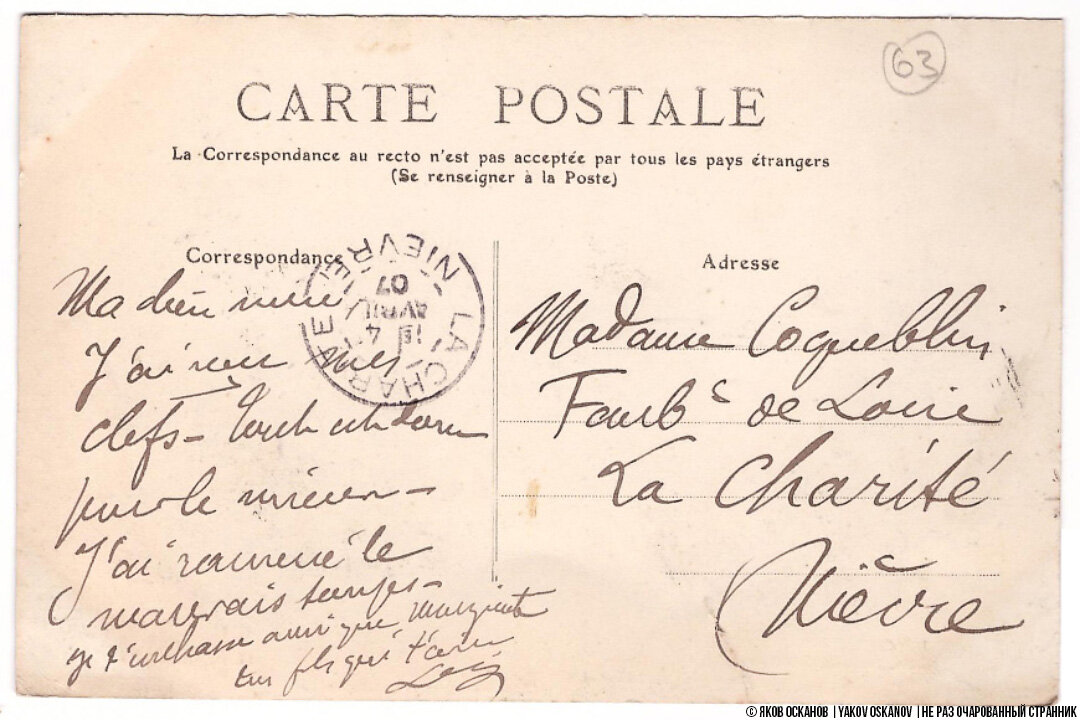 63
CARTE POSTALE
La Correspondance au recto n'est pas acceptée par tous les pays étrangers
(Se renseigner à la Poste)
Correspondance
Ma chère mère
J'ai reçu mes
clefs - tout est donc
pour le mieux -
J'ai ramené le
mauvais temps -
Je t'embrasse ainsi que Marguerite
ton fils qui t'aime
LA CHARITE
NIEVRE
4
AVRIL
07
Adresse
Madame Coqueblin
Faubg de Loire
La Charité
Nièvre
© ЯКОВ ОСКАНОВ | YAKOV OSKANOV | НЕ РАЗ ОЧАРОВАННЫЙ СТРАННИК